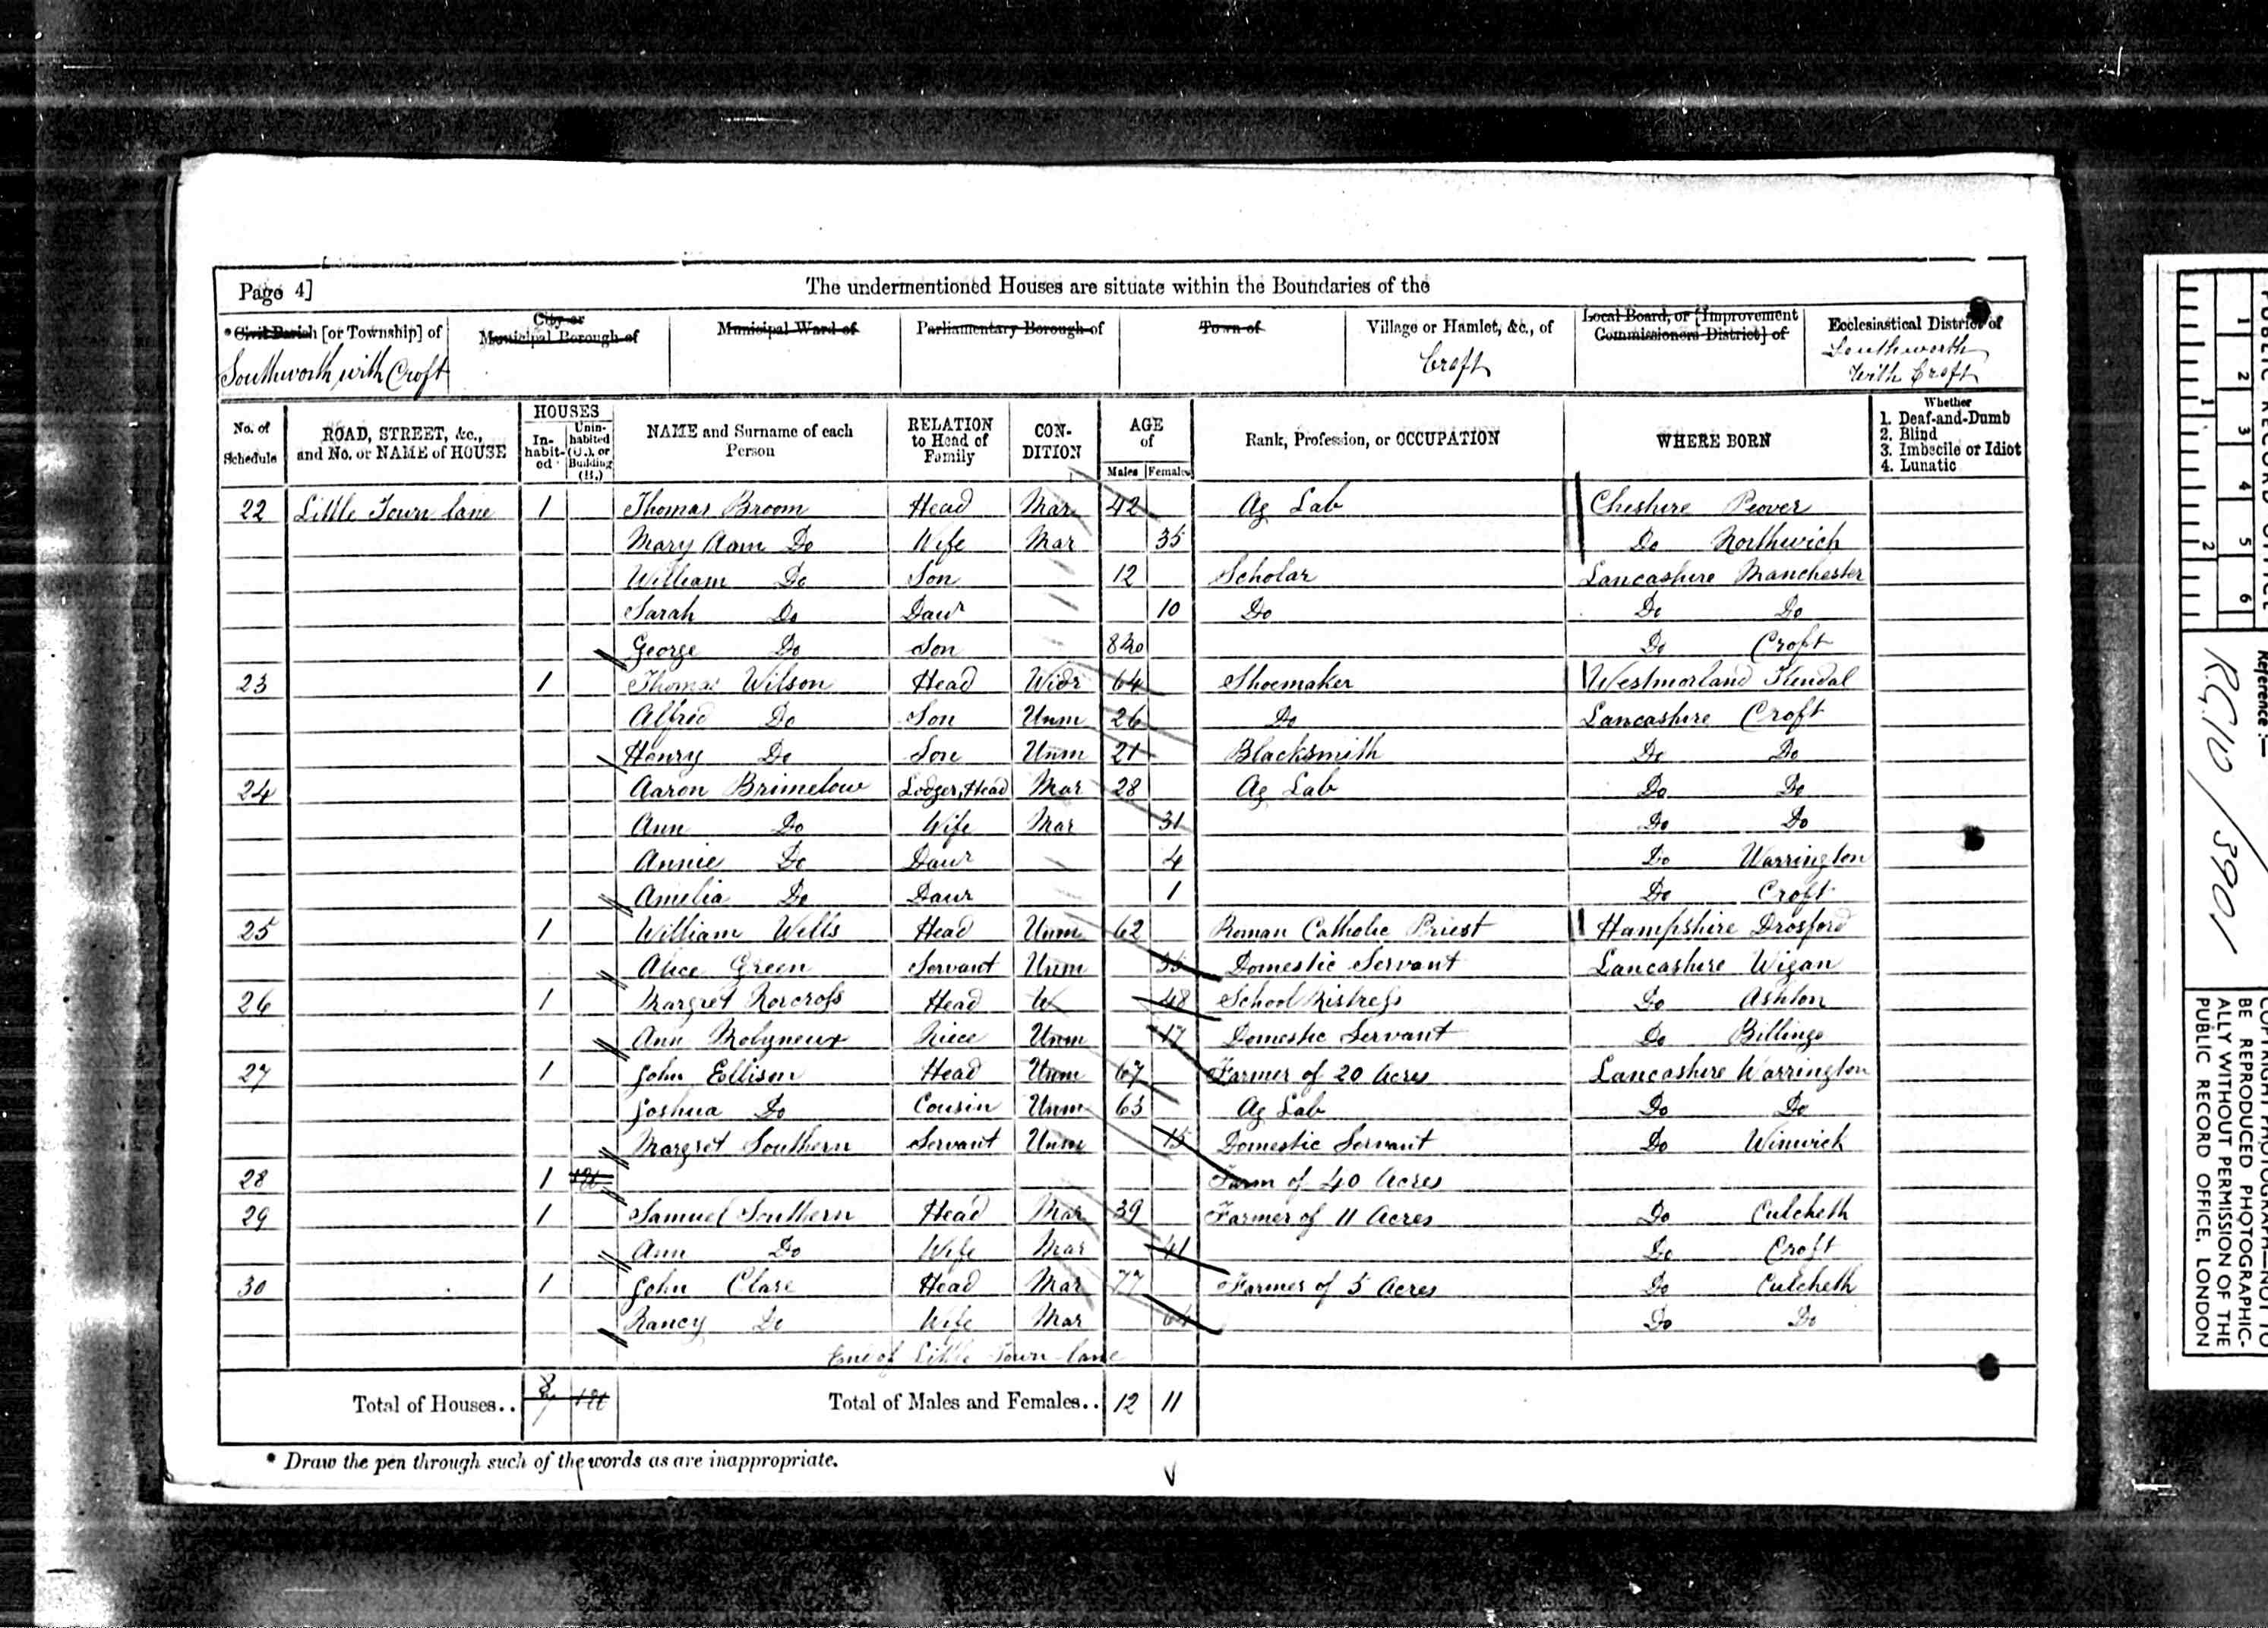 Page 4]
The undermentioned Houses are situate within the Boundaries of the
* Civil Parish [or Township] of
Southworth with Croft
City or Municipal Borough of
Municipal Ward of
Parliamentary Borough of
Town of
Village or Hamlet, &c., of
Croft
Local Board, or [Improvement Commissioners District] of
Ecclesiastical District of
Southworth
With Croft
No. of Schedule
ROAD, STREET, &c., and No. or NAME of HOUSE
HOUSES
In-habit-ed
Unin-habited (U.), or Building (B.)
NAME and Surname of each Person
RELATION to Head of Family
CON-DITION
AGE of
Males Females
Rank, Profession, or OCCUPATION
WHERE BORN
Whether
1. Deaf-and-Dumb
2. Blind
3. Imbecile or Idiot
4. Lunatic
22 Little Town lane 1 Thomas Broom Head Mar 42 Ag Lab Cheshire Peover
Mary Ann Do Wife Mar 35 Do Northwich
William Do Son 12 Scholar Lancashire Manchester
Sarah Do Daur 10 Do Do Do
George Do Son Do Croft
23 1 Thomas Wilson Head Widr 64 Shoemaker Westmorland Kendal
Alfred Do Son Unm 26 Do Lancashire Croft
Henry Do Son Unm 21 Blacksmith Do Do
24 Aaron Brimelow Lodger, Head Mar 28 Ag Lab Do Do
Ann Do Wife Mar 31 Do Do
Annie Do Daur 4 Do Warrington
Amelia Do Daur 1 Do Croft
25 1 William Wells Head Unm 62 Roman Catholic Priest Hampshire Drosford
Alice Green Servant Unm Domestic Servant Lancashire Wigan
26 1 Margret Norcross Head W 48 School Mistress Do Ashton
Ann Molyneux Niece Unm 17 Domestic Servant Do Billinge
27 1 John Ellison Head Unm 67 Farmer of 20 Acres Lancashire Warrington
Joshua Do Cousin Unm 63 Ag Lab Do Do
Margret Southern Servant Unm 15 Domestic Servant Do Winwick
28 1 Farm of 40 Acres
29 1 Samuel Southern Head Mar 39 Farmer of 11 Acres Do Culcheth
Ann Do Wife Mar 41 Do Croft
30 1 John Clare Head Mar 77 Farmer of 5 Acres Do Culcheth
Nancy Do Wife Mar 64 Do Do
End of Little Town lane
Total of Houses.. Total of Males and Females.. 12 11
* Draw the pen through such of the words as are inappropriate.
PUBLIC RECORD OFFICE
1 2 3 4 5 6
1 2
Reference:-
R.G. 10 / 3901
COPYRIGHT PHOTOGRAPH—NOT TO
BE REPRODUCED PHOTOGRAPHIC-
ALLY WITHOUT PERMISSION OF THE
PUBLIC RECORD OFFICE, LONDON